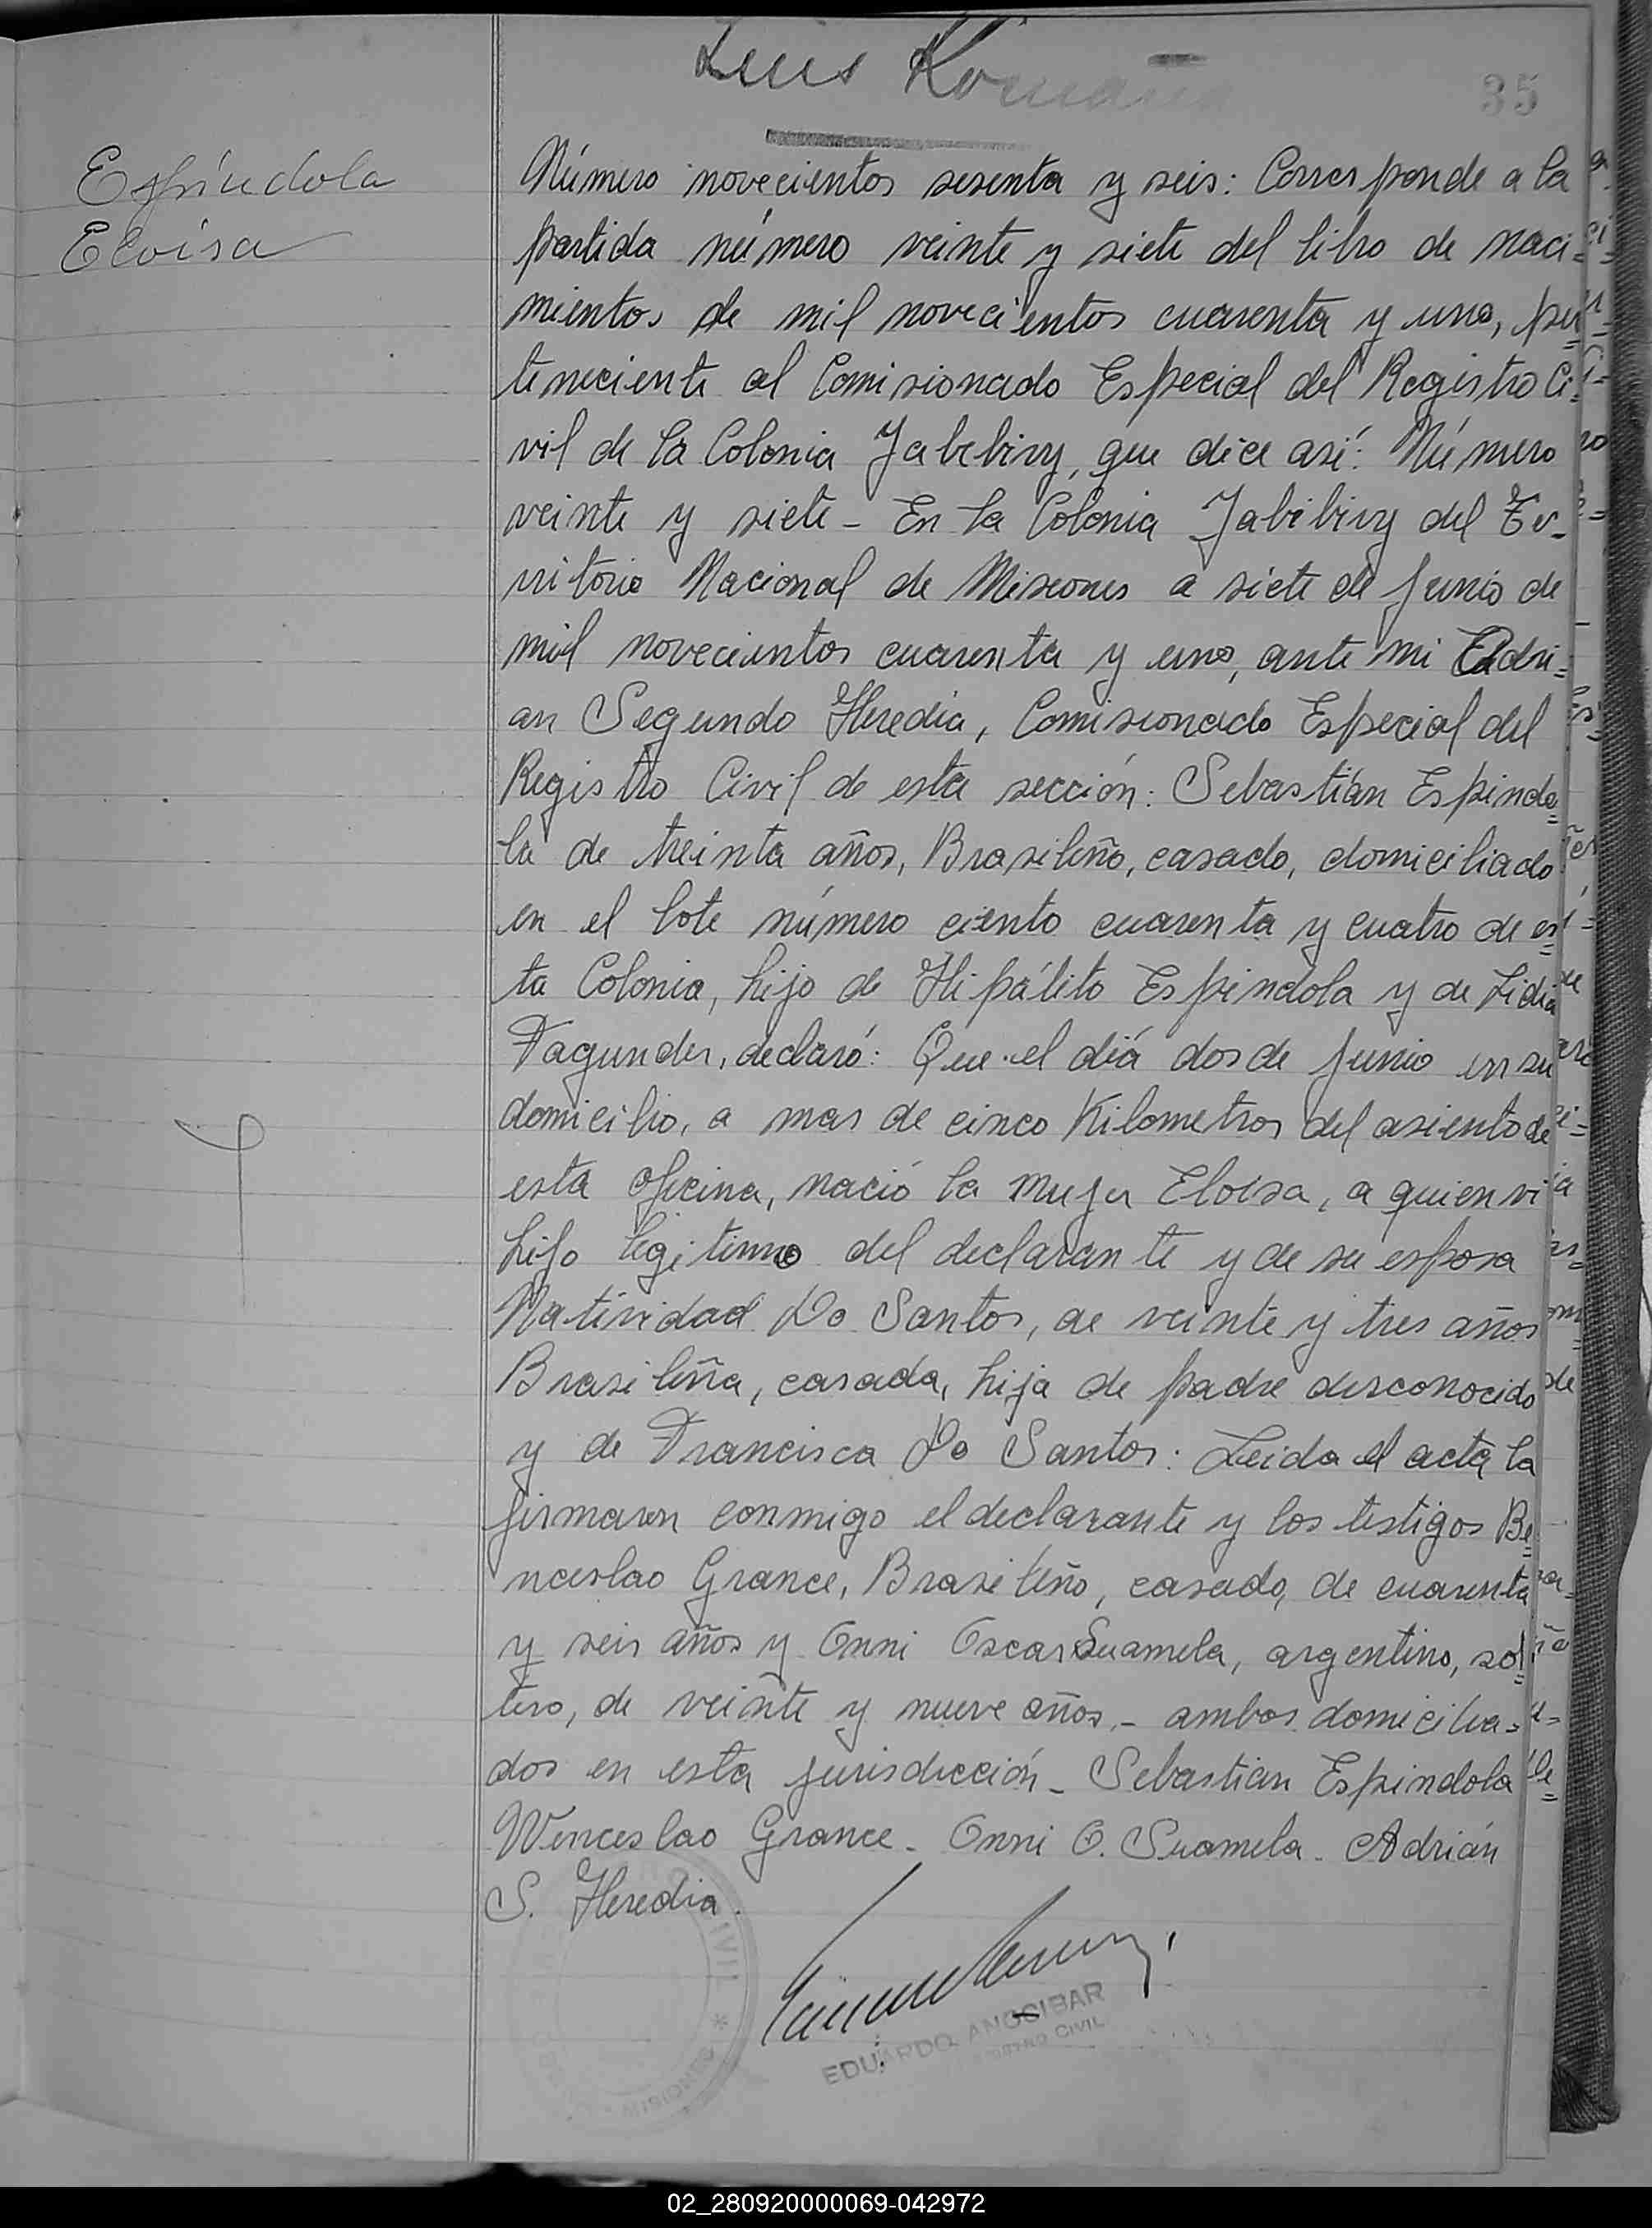 Luis Román
35
Espíndola
Eloisa
Número novecientos sesenta y seis: Corresponde a la
partida número veinte y siete del libro de naci=
mientos de mil novecientos cuarenta y uno, per=
teneciente al Comisionado Especial del Registro Ci=
vil de la Colonia Yabebiry, que dice así: Número
veinte y siete - En la Colonia Yabebiry del Te-
rritorio Nacional de Misiones a siete de Junio de
mil novecientos cuarenta y uno, ante mi Adri=
an Segundo Heredia, Comisionado Especial del
Registro Civil de esta sección: Sebastián Espindo=
la de treinta años, Brasileño, casado, domiciliado
en el lote número ciento cuarenta y cuatro de es=
ta Colonia, hijo de Hipólito Espindola y de Lidia
Fagundes, declaró: Que el día dos de Junio en su
domicilio, a mas de cinco Kilometros del asiento de
esta oficina, nació la mujer Eloisa, a quien vi
hijo legitimo del declarante y de su esposa
Natividad Do Santos, de veinte y tres años
Brasileña, casada, hija de padre desconocido
y de Francisca Do Santos: Leida el acta, la
firmaron conmigo el declarante y los testigos Be=
nceslao Grance, Brasileño, casado, de cuarenta
y seis años y Onni Oscar Suamela, argentino, sol=
tero, de veinte y nueve años.- ambos domicilia=
dos en esta jurisdicción - Sebastian Espindola
Wenceslao Grance - Onni O. Suamela - Adrián
S. Heredia.
CIVIL * MISIONES
EDUARDO ANOCIBAR
CIVIL
02_280920000069-042972